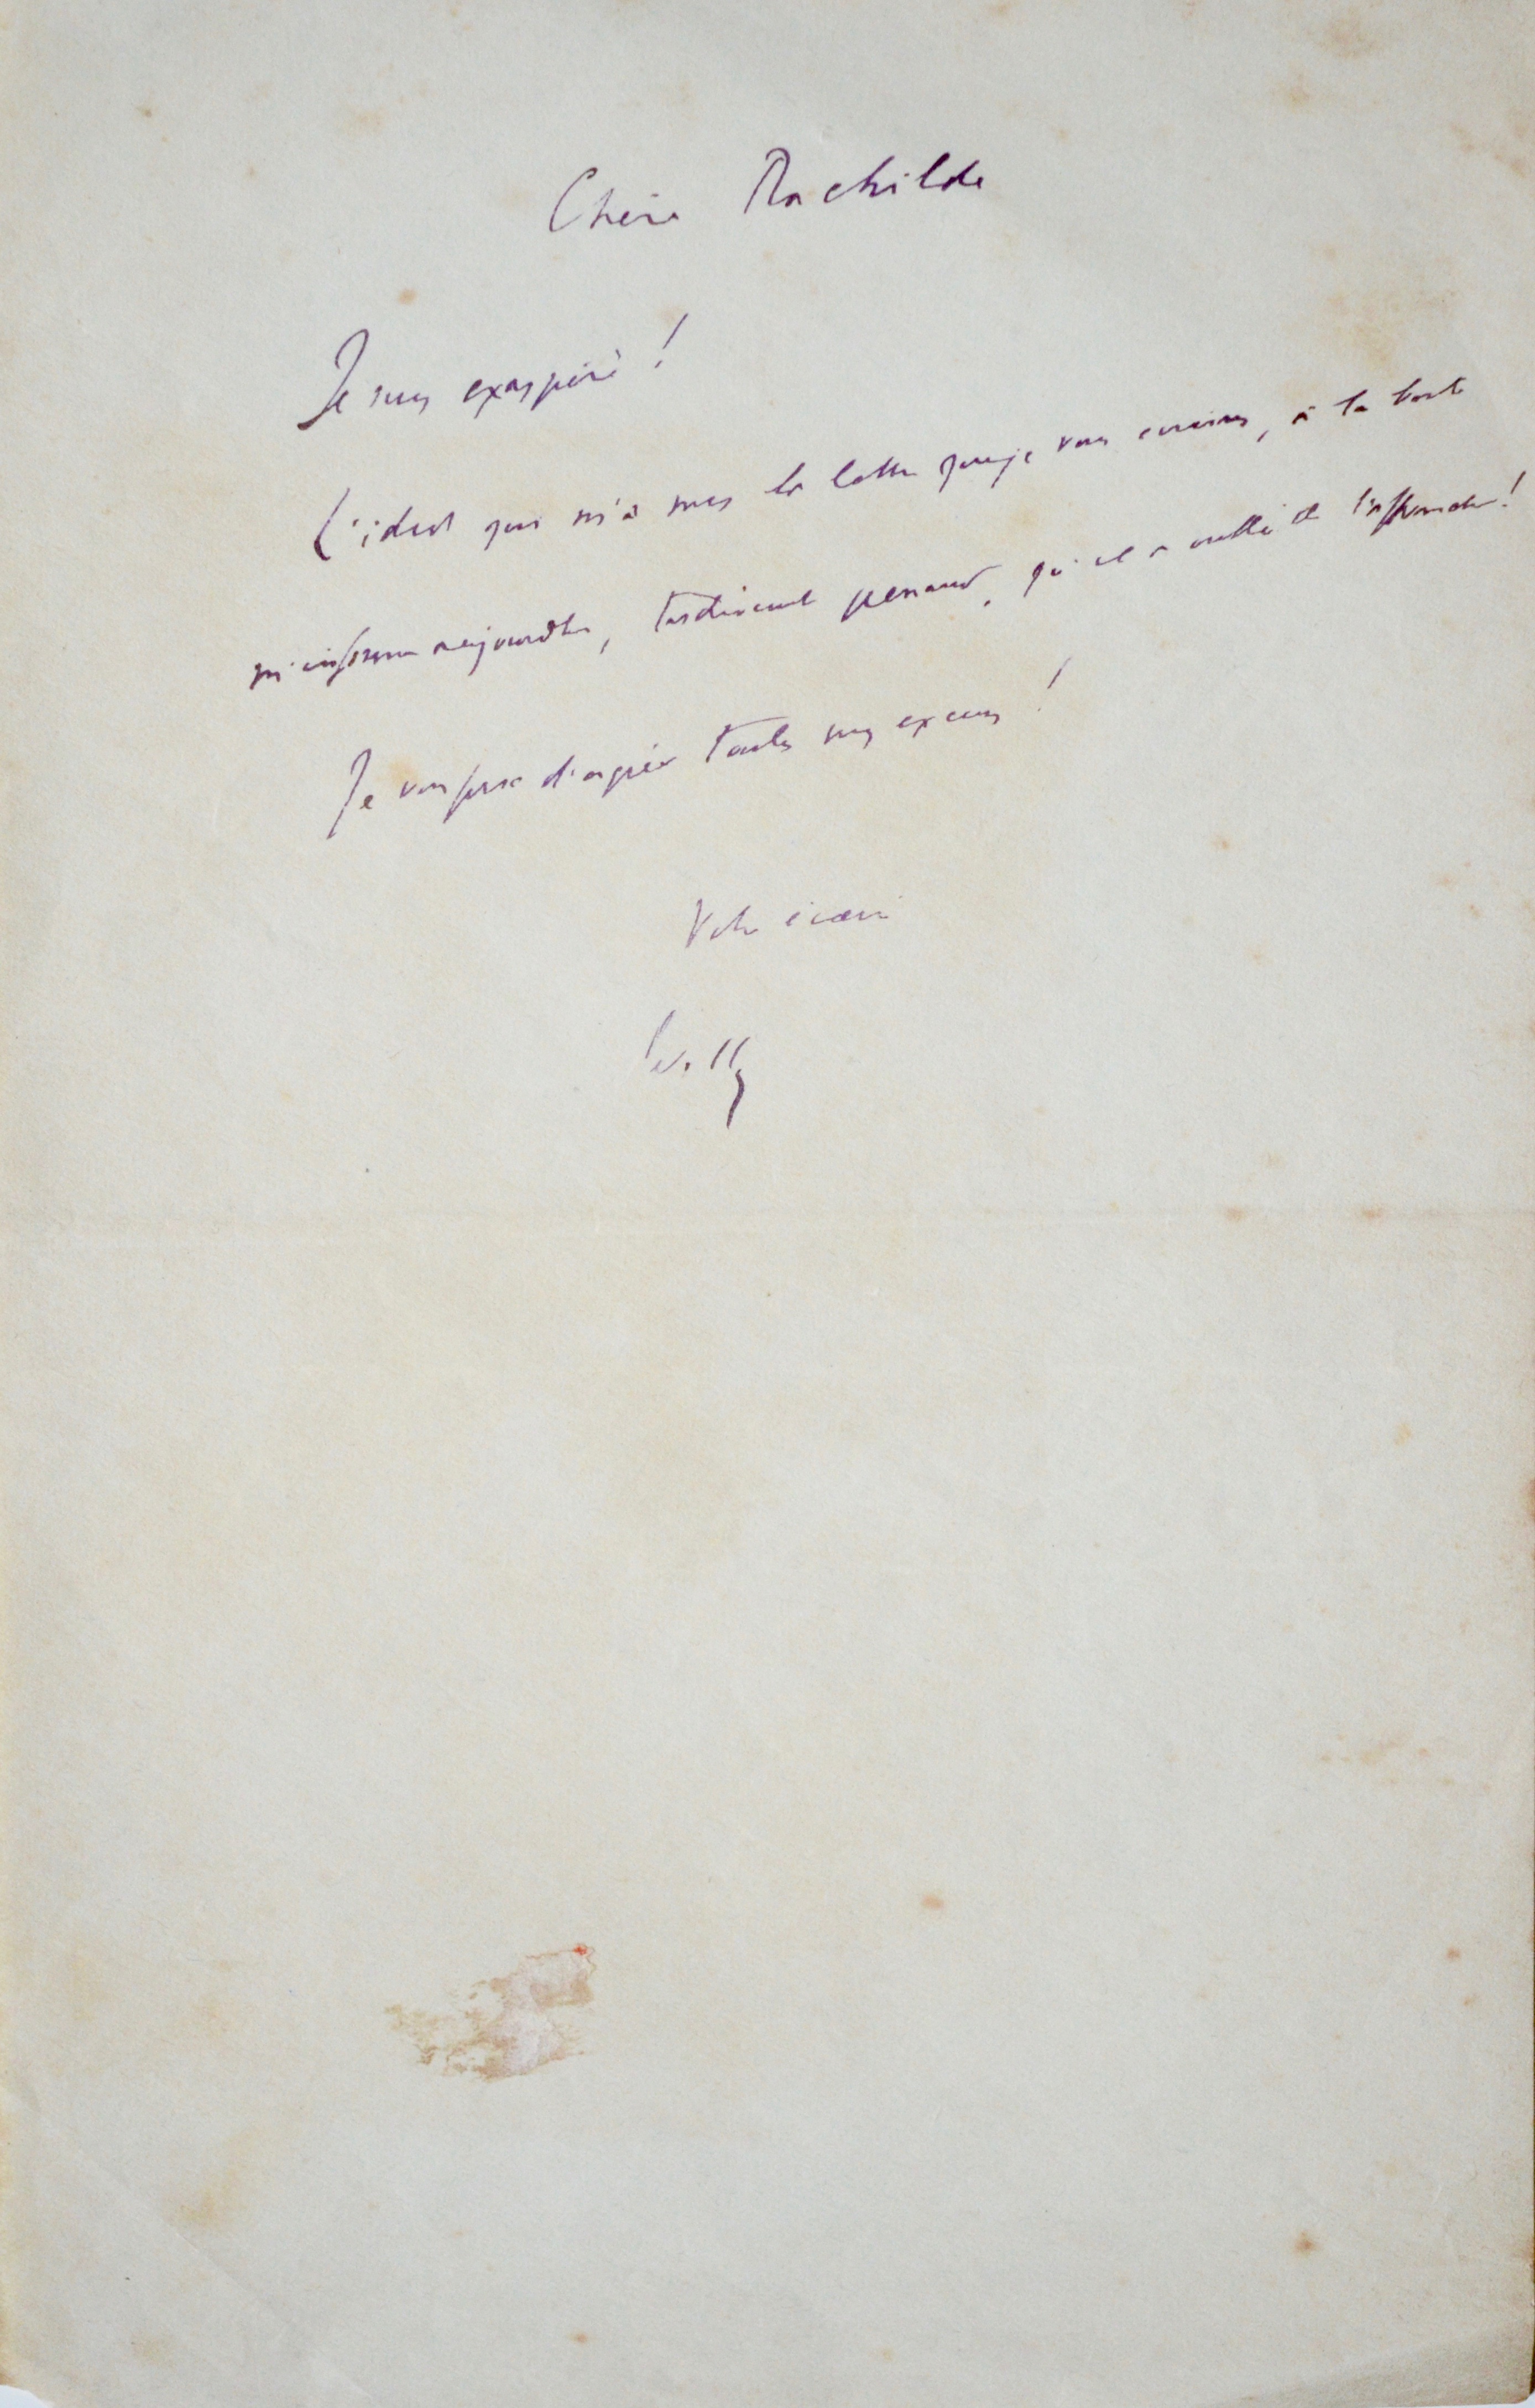 Chère Rachilde
Je suis exaspéré !
L'idiot qui m'a mis la lettre que je vous écrivais, à la boîte
m'informe aujourd'hui, tardivement penaud, qu'il a oublié de l'affranchir !
Je vous prie d'agréer toutes mes excuses !
Votre écœuré
Willy